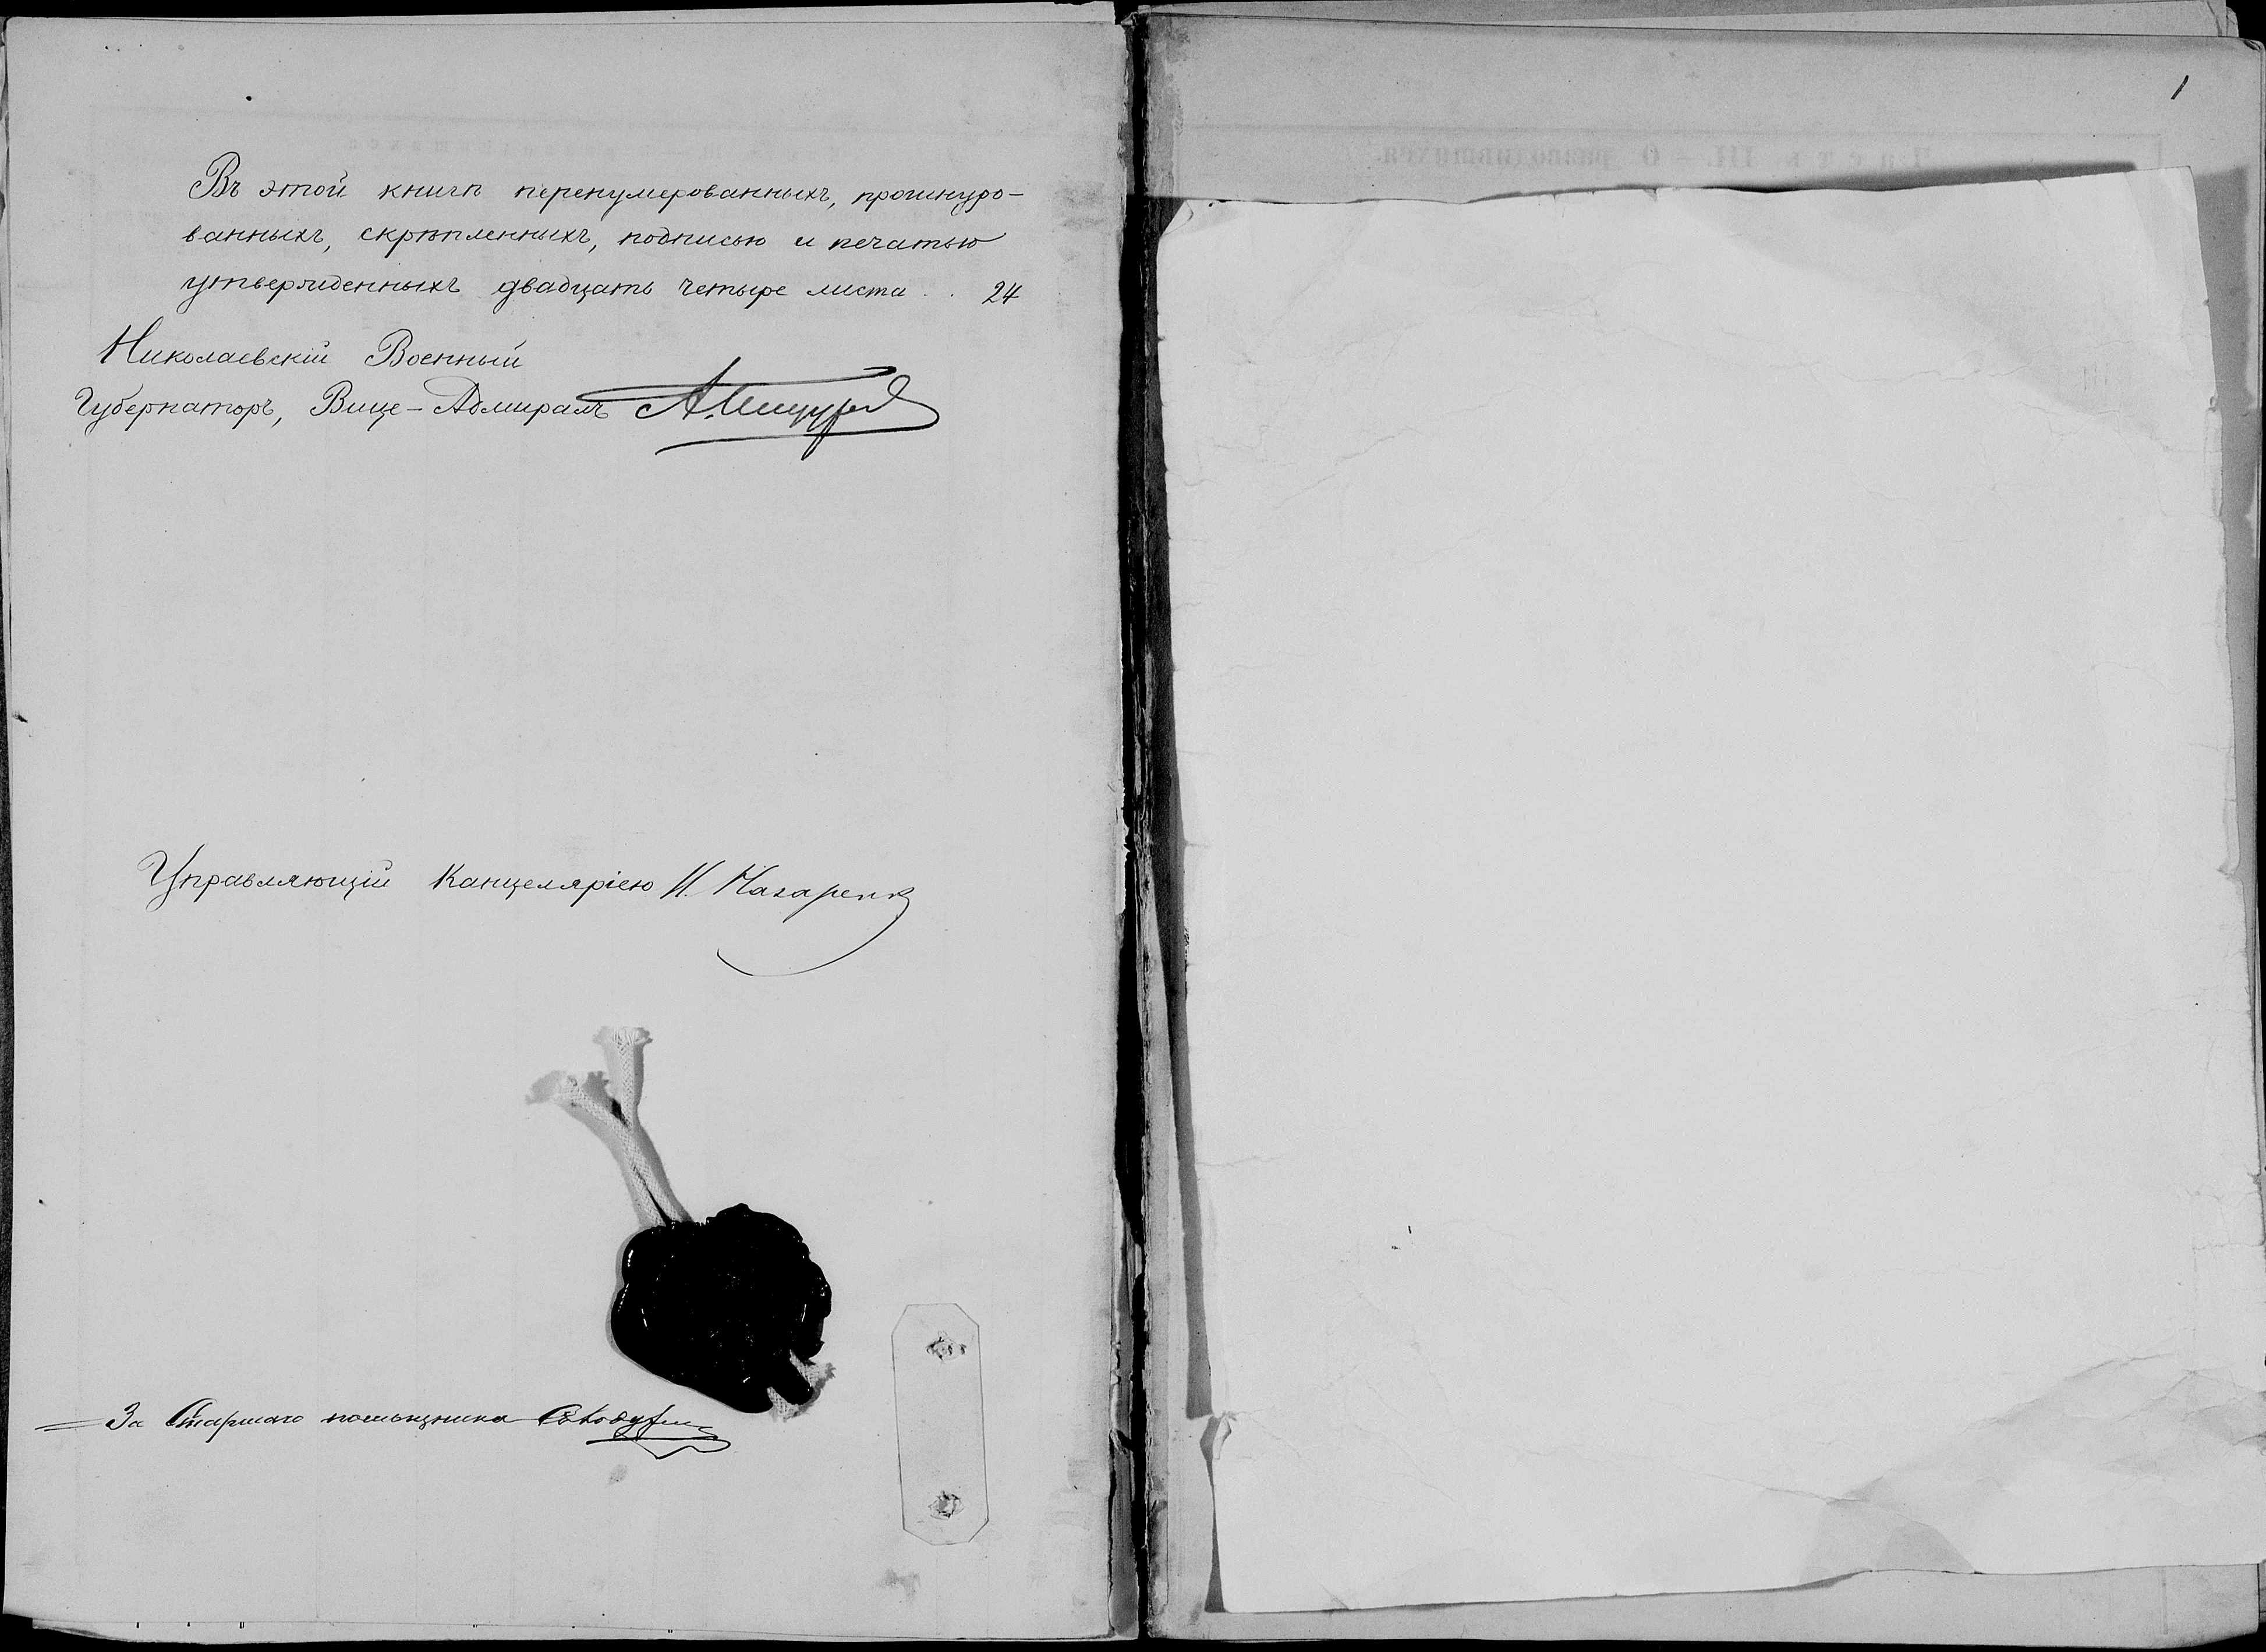 Въ этой книгѣ перенумерованныхъ, прошнуро-
ванныхъ, скрѣпленныхъ, подписью и печатью
утвержденныхъ двадцать четыре листа . . 24
Николаевскій Военный
Губернаторъ, Вице-Адмиралъ А.
Управляющій Канцеляріею Н. Назаренко
За Старшаго помощника
1
Часть III. – О разводившихся.